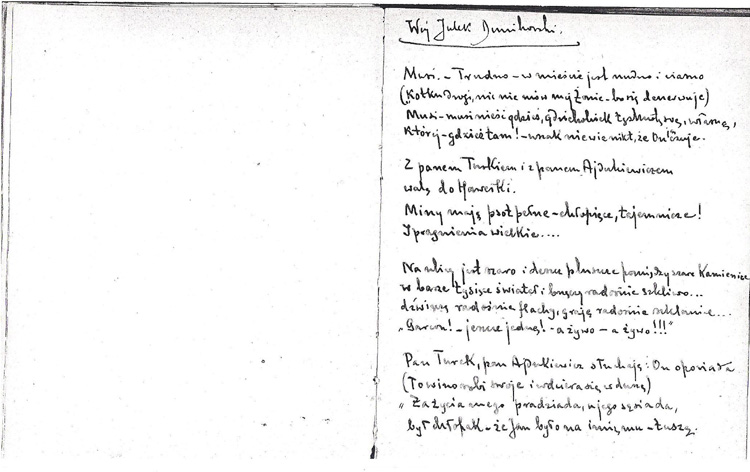 Wój Julek Dunikowski.
Musi. – Trudno – w mieście jest nudno i ciasno
(Kotku drogi, nic nie mów mej Żonie – bo się denerwuje)
Musi – musi nieść gdzieś, gdziekolwiek tęsknotę swą, własną,
której – gdzież tam! – wszak nie wie nikt, że On czuje.
Z panem Turkiem i z panem Ajdukiewiczem
walą do Hawełki.
Miny mają psot pełne – chłopięce, tajemnicze!
I pragnienia wielkie....
Na ulicy jest szaro i deszcz pluszcze pomiędzy szare Kamienice
w barze tysiące świateł i radośnie szkliwo...
dźwięczą radośnie flachy, grają radośnie szklanice...
„Garson! – jeszcze jedną! – a żywo – a żywo!!!"
Pan Turek, pan Ajdukiewicz słuchają: On opowiada
(To wino robi swoje i wdziera się w duszę)
„Za życia mego pradziada, u jego sąsiada,
był chłopak – że Jan było na imię mu – tuszę.